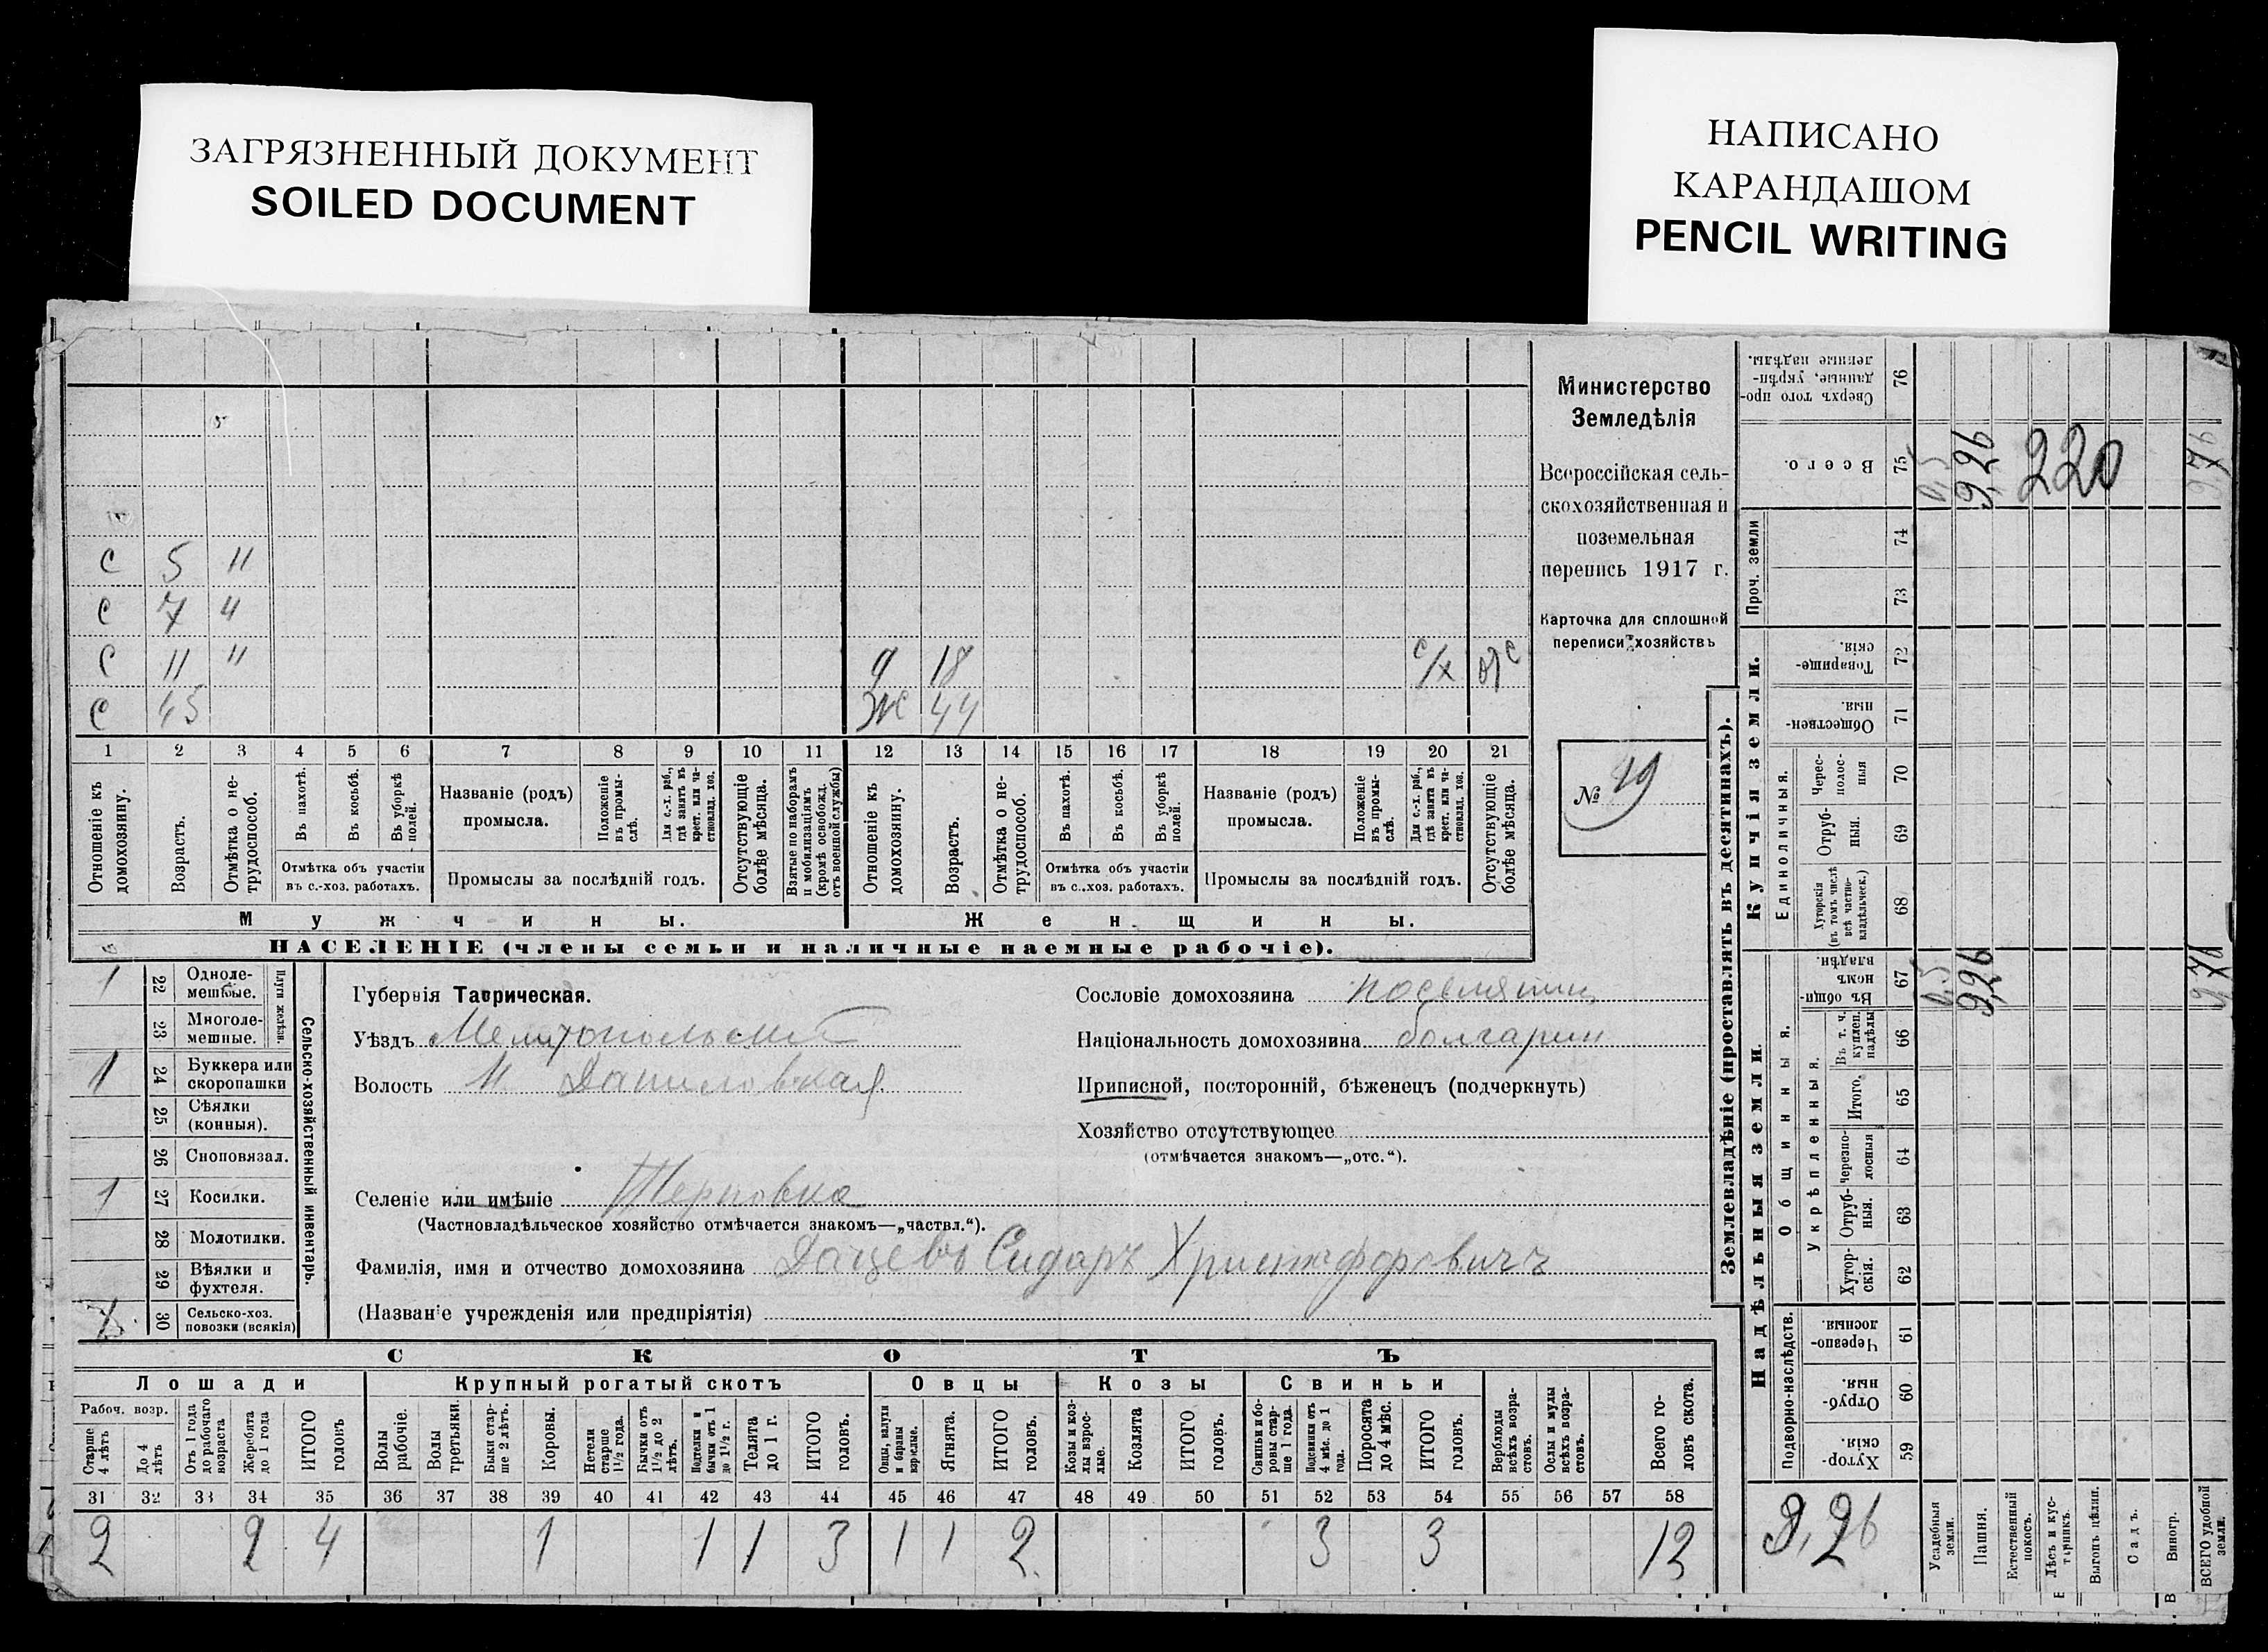 ЗАГРЯЗНЕННЫЙ ДОКУМЕНТ
SOILED DOCUMENT
НАПИСАНО
КАРАНДАШОМ
PENCIL WRITING
Министерство
Земледѣлія
Всероссійская сель-
скохозяйственная и
поземельная
перепись 1917 г.
Карточка для сплошной
переписи хозяйствъ
№ 19
С 5 11
С 7 11
С 11 11 18 с/х
С 45 Ж 44
1 2 3 4 5 6 7 8 9 10 11 12 13 14 15 16 17 18 19 20 21
Отношеніе къ домохозяину.
Возрастъ.
Отмѣтка о не-трудоспособ.
Въ пахотѣ.
Въ косьбѣ.
Въ уборкѣ полей.
Отмѣтка объ участіи
въ с.-хоз. работахъ.
Названіе (родъ)
промысла.
Положеніе въ промы-слѣ.
Для с.-х. раб., гдѣ занятъ въ крест. или ча-стновлад. хоз.
Промыслы за послѣдній годъ.
Отсутствующіе болѣе мѣсяца.
Взятые по наборамъ и мобилизаціямъ (кромѣ освобожд. отъ военной службы)
Отношеніе къ домохозяину.
Возрастъ.
Отмѣтка о не-трудоспособ.
Въ пахотѣ.
Въ косьбѣ.
Въ уборкѣ полей.
Отмѣтка объ участіи
въ с..хоз. работахъ.
Названіе (родъ)
промысла.
Положеніе въ промы-слѣ.
Для с.-х. раб., гдѣ занята въ крест. или ча-стновлад. хоз.
Промыслы за послѣдній годъ.
Отсутствующіе болѣе мѣсяца.
Мужчины. Женщины.
НАСЕЛЕНІЕ (члены семьи и наличные наемные рабочіе).
1 22 Одноле-мешные.
23 Многоле-мешные.
Плуги желѣзн.
1 24 Буккера или скоропашки
25 Сѣялки (конныя).
26 Сноповязал.
1 27 Косилки.
28 Молотилки.
29 Вѣялки и фухтеля.
30 Сельско-хоз. повозки (всякія)
Сельско-хозяйственный инвентарь.
Губернія Таврическая.
Уѣздъ Мелитопольскій
Волость Н Даниловская
Сословіе домохозяина поселянин
Національность домохозяина болгарин
Приписной, посторонній, бѣженецъ (подчеркнуть)
Хозяйство отсутствующее
(отмѣчается знакомъ—„отс.“).
Селеніе или имѣніе Терновка
(Частновладѣльческое хозяйство отмѣчается знакомъ—„частвл.“).
Фамилія, имя и отчество домохозяина Дацевъ Сидоръ Христофоровичъ
(Названіе учрежденія или предпріятія)
СКОТЪ
Лошади Крупный рогатый скотъ Овцы Козы Свиньи
Рабоч. возр.
Старше 4 лѣтъ
До 4 лѣтъ
Отъ 1 года до рабочаго возраста
Жеребята до 1 года
ИТОГО головъ
Волы рабочіе.
Волы третьяки.
Быки стар-ше 2 лѣтъ.
Коровы.
Нетели старше 1½ года.
Бычки отъ 1½ до 2 лѣтъ.
Подтелки и бычки отъ 1 до 1½ г.
Телята до 1 г.
ИТОГО головъ.
Овцы, валухи и бараны взрослые.
Ягнята.
ИТОГО головъ.
Козы и коз-лы взрос-лые.
Козлята
ИТОГО головъ.
Свиньи и бо-ровы стар-ше 1 года.
Подсвинки отъ 4 мѣс. до 1 года.
Поросята до 4 мѣс.
ИТОГО головъ.
Верблюды всѣхъ возра-стовъ.
Ослы и мулы всѣхъ возра-стовъ.
Всего го-ловъ скота.
31 32 33 34 35 36 37 38 39 40 41 42 43 44 45 46 47 48 49 50 51 52 53 54 55 56 57 58
2 2 4 1 1 1 3 1 1 2 3 3 12
Землевладѣніе (проставлять въ десятинахъ).
Надѣльныя земли.
Купчія земли.
Проч. земли
Подворно-наслѣдств.
Общинныя.
Укрѣпленныя.
Единоличныя.
Сверхъ того про-данные, укрѣп-ленные надѣлы. 76
Всего. 75
74
73
Товарище-скія. 72
Обществен-ныя. 71
Черес-полос-ныя 70
Отруб-ныя. 69
Хуторскія (въ томъ числѣ всѣ частно-владѣльческ.) 68
Въ общи-номъ владѣн. 67
Въ т. ч. куплен. надѣлы 66
Итого. 65
Черезпо-лосныя 64
Отруб-ныя. 63
Хутор-скія. 62
Черезпо-лосныя. 61
Отруб-ныя. 60
Хутор-скія. 59
0,5 9,26 220 9,76
0,5 9,26 9,76
9,26
Усадебныя земли.
Пашня.
Естественный покосъ.
Лѣсъ и кус-тарникъ.
Выгонъ цѣлин.
Садъ.
Виногр.
ВСЕГО удобной земли.